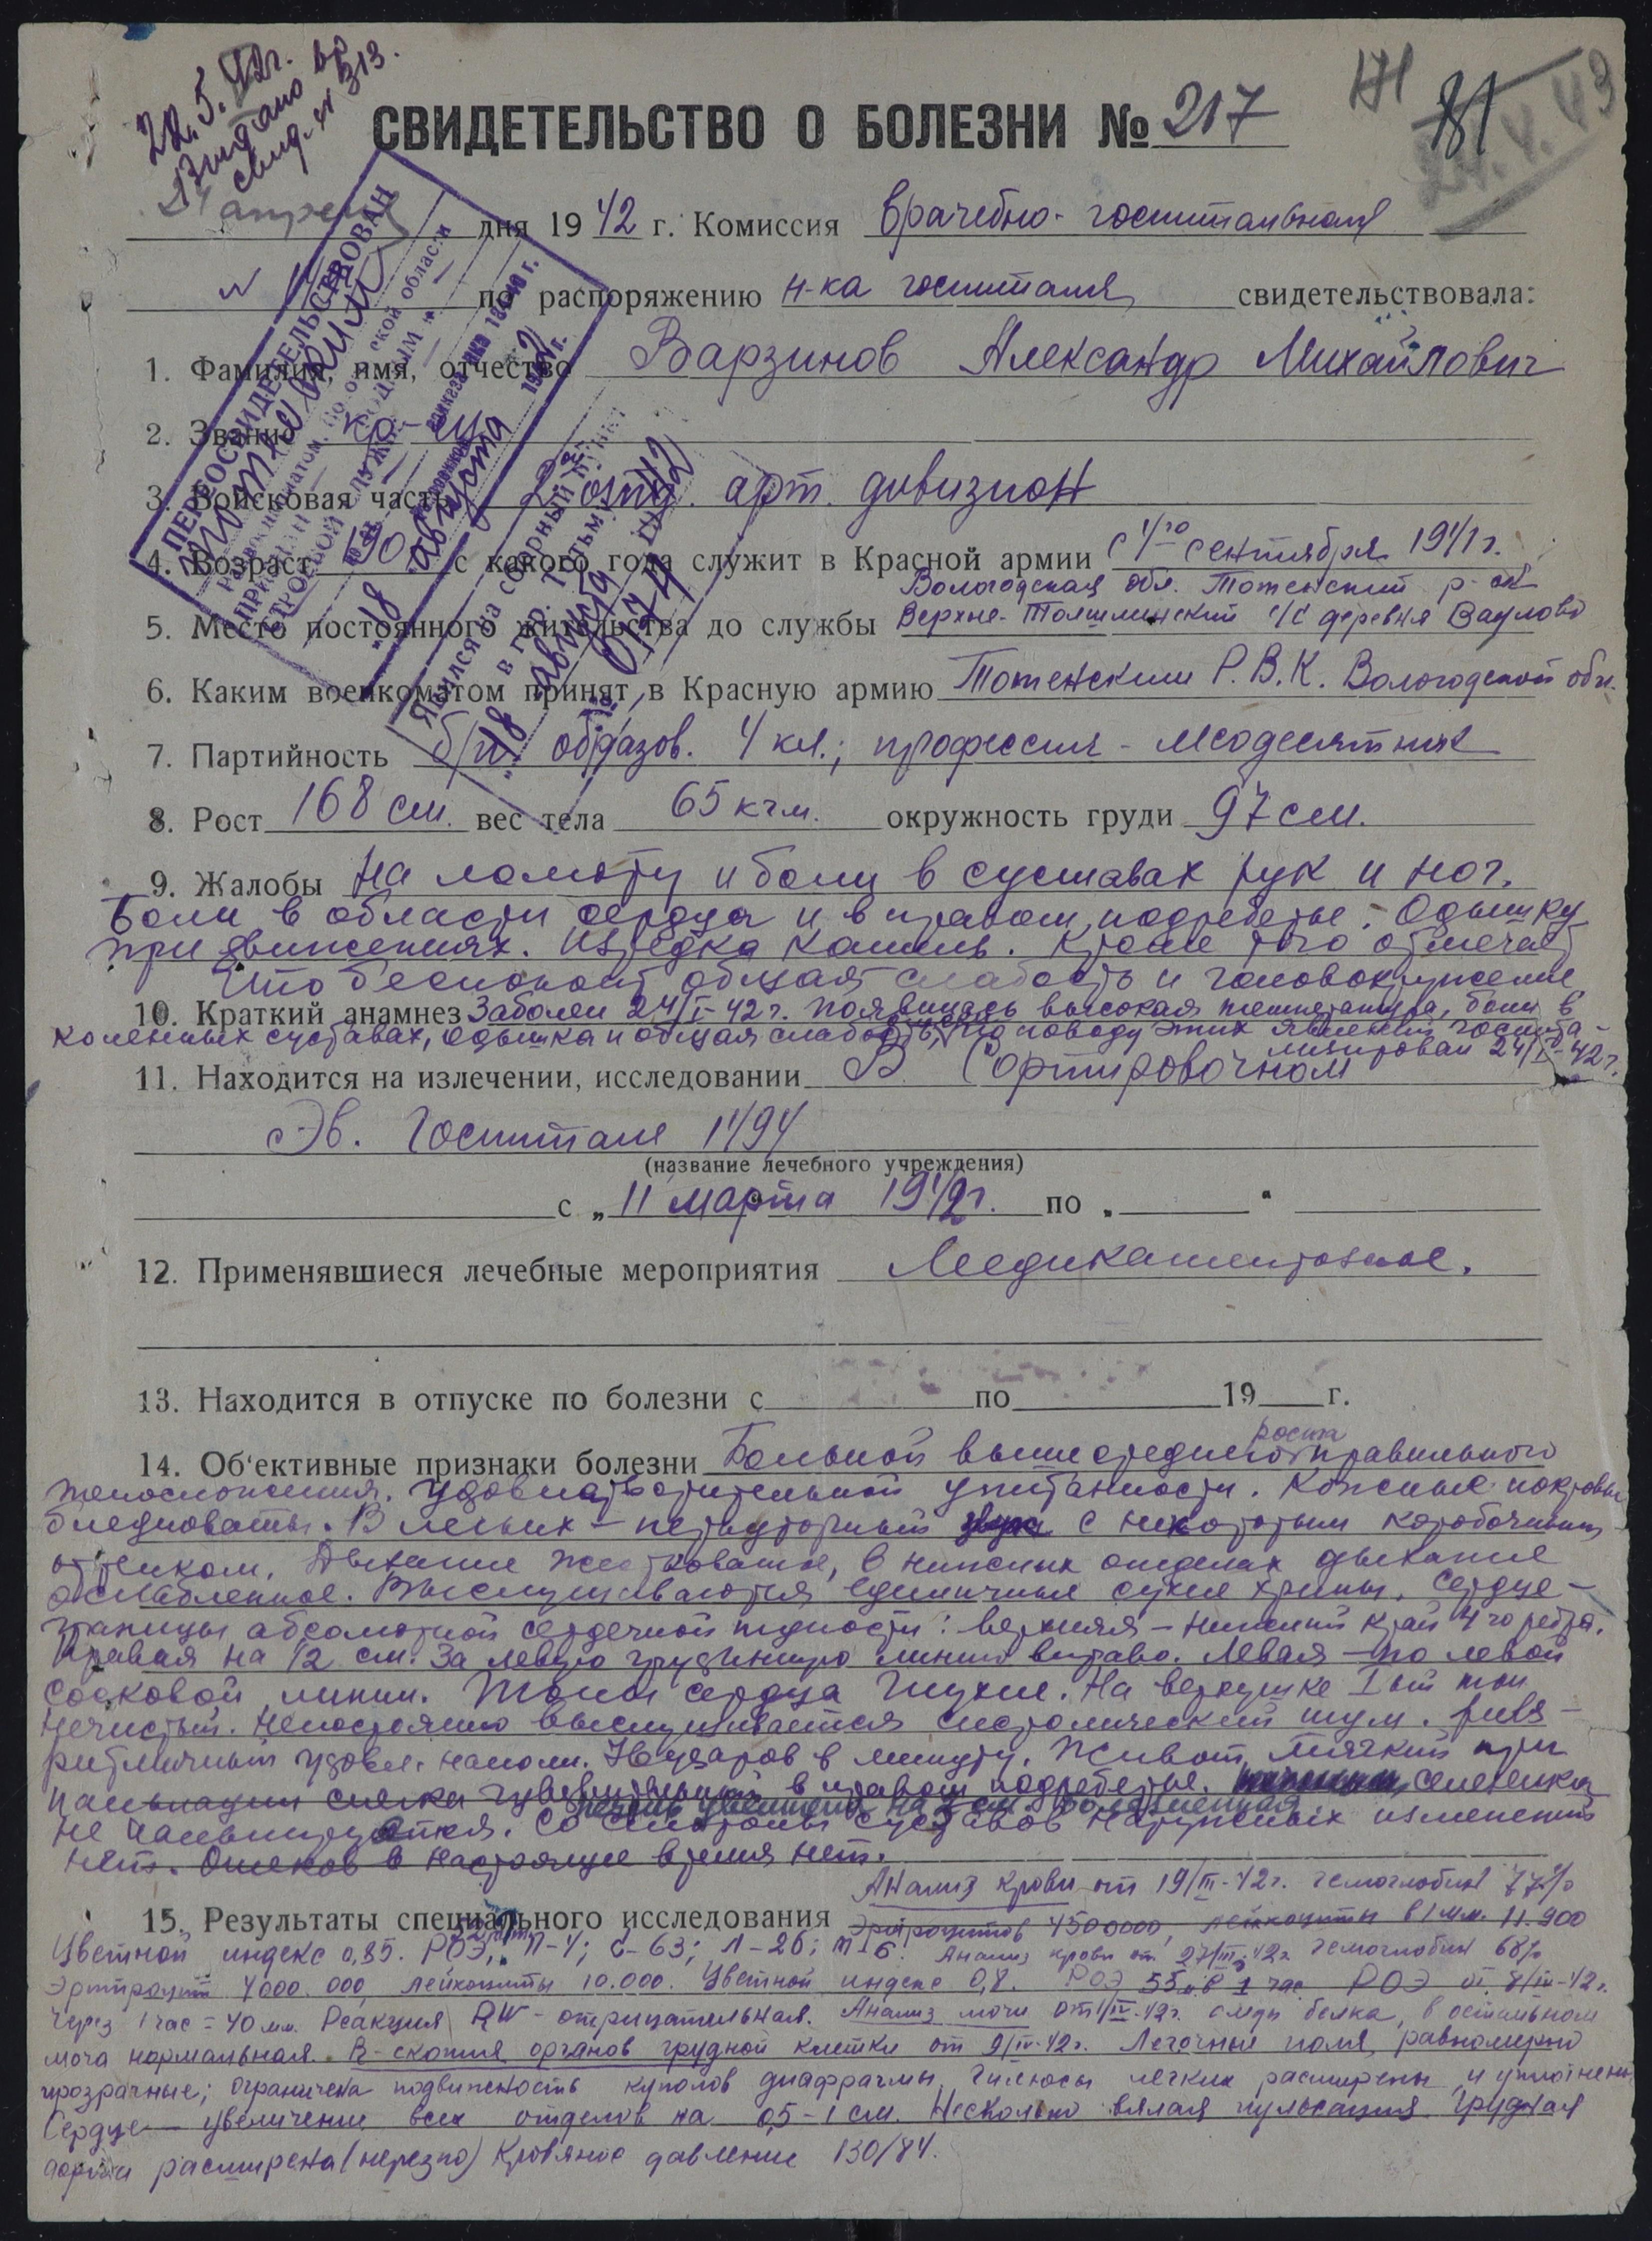 22.5.42г.
Выдано вр
свид-м 313.
171
81
24.4.43
СВИДЕТЕЛЬСТВО О БОЛЕЗНИ № 217
24 апреля дня 1942 г. Комиссия врачебно-госпитальная
по распоряжению н-ка госпиталя свидетельствовала:
1. Фамилия, имя, отчество Варзинов Александр Михайлович
2. Звание кр-ец
3. Войсковая часть 2 отд. арт. дивизион
4. Возраст с какого года служит в Красной армии с 1го сентября 1941г.
Вологодская обл. Тотемский р-он
5. Место постоянного жительства до службы Верхне-Толшминский с/с деревня Ваулово
6. Каким военкоматом принят в Красную армию Тотемским Р.В.К. Вологодской обл.
7. Партийность б/п образов. 4 кл.; профессия -
8. Рост 168 см. вес тела 65 кгм. окружность груди 97 см.
9. Жалобы На ломоту и боли в суставах рук и ног.
Боли в области сердца и в правом подреберье. Одышку
при движениях. Изредка кашель. Кроме того отмечает
что беспокоит общая слабость и головокружение
10. Краткий анамнез Заболел 24/I-42г. Появилась высокая температура, боли в
коленных суставах, одышка и общая слабость, по поводу этих явлений госпита-
лизирован 24/I-42г.
11. Находится на излечении, исследовании В Сортировочном
Эв. Госпитале 1494
(название лечебного учреждения)
с „11 марта 1942г. по „
12. Применявшиеся лечебные мероприятия Медикаментозное.
13. Находится в отпуске по болезни с по 19 г.
14. Об'ективные признаки болезни Больной выше среднего роста правильного
телосложения. Удовлетворительной упитанности. Кожные покровы
бледноваты. В легких - перкуторный звук с некоторым коробочным
оттенком. Дыхание жестковатое, в нижних отделах дыхание
ослабленное. Выслушиваются единичные сухие хрипы. Сердце -
границы абсолютной сердечной тупости: верхняя - нижний край 4го ребра.
Правая на 1/2 см. за левую грудинную линию вправо. Левая - по левой
сосковой линии. Тоны сердца глухие. На верхушке I ый тон
нечистый. Непостоянно выслушивается систолический шум. Пульс -
ритмичный удовл. наполн. ударов в минуту. Живот мягкий при
пальпации слегка чувствительный в правом подреберье. селезенка
печень увеличена на 2 см. болезненная.
не пальпируется. Со стороны суставов наружных изменений
нет. Отеков в настоящее время нет.
Анализ крови от 19/III-42г. гемоглобин 77%
15. Результаты специального исследования Эритроцитов 4500000, лейкоциты в 1 мм. 11.900
Цветной индекс 0,85. РОЭ, П-4; С-63; Л-26; М-6. Анализ крови от 27/III-42г. гемоглобин 68%
Эритроцит 4000.000, лейкоциты 10.000. Цветной индекс 0,8. РОЭ 55 в 1 час РОЭ от 8/IV-42г.
через 1 час = 40 мм. Реакция RW - отрицательная. Анализ мочи от 1/IV-42г. следы белка, в остальном
моча нормальная. R-скопия органов грудной клетки от 9/IV-42г. Легочные поля равномерно
прозрачные; ограничена подвижность куполов диафрагмы. Гилюсы легких расширены и уплотнены
Сердце - увеличение всех отделов на 0,5-1 см. Несколько вялая пульсация. Грудная
аорта расширена (нерезко) Кровяное давление 130/84.
ПЕРЕОСВИДЕТЕЛЬСТВОВАН
Тотемским
18 августа 1942 г.
Явился на сборный пункт
в гор. Тотьму
18 августа 42